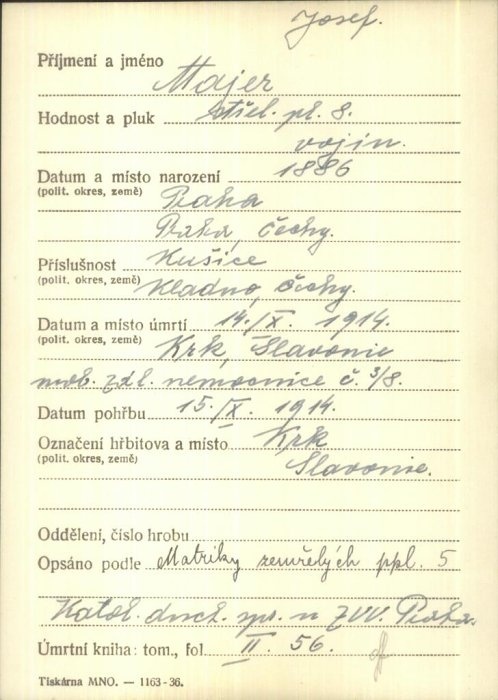 Josef.
Příjmení a jméno Majer
Hodnost a pluk střel. pl. 8.
vojín.
Datum a místo narození 1886
(polit. okres, země) Praha
Praha, Čechy.
Příslušnost Kušice
(polit. okres, země) Kladno, Čechy.
Datum a místo úmrtí 14./X. 1914.
(polit. okres, země) Krk, Slavonie
mob. zál. nemocnice č. 3/8.
Datum pohřbu 15./X. 1914.
Označení hřbitova a místo Krk
(polit. okres, země) Slavonie.
Oddělení, číslo hrobu
Opsáno podle Matriky zemřelých ppl. 5
Katol. duch. spr. u ZVV. Praha.
Úmrtní kniha: tom., fol. II. 56.
Tiskárna MNO. — 1163-36.